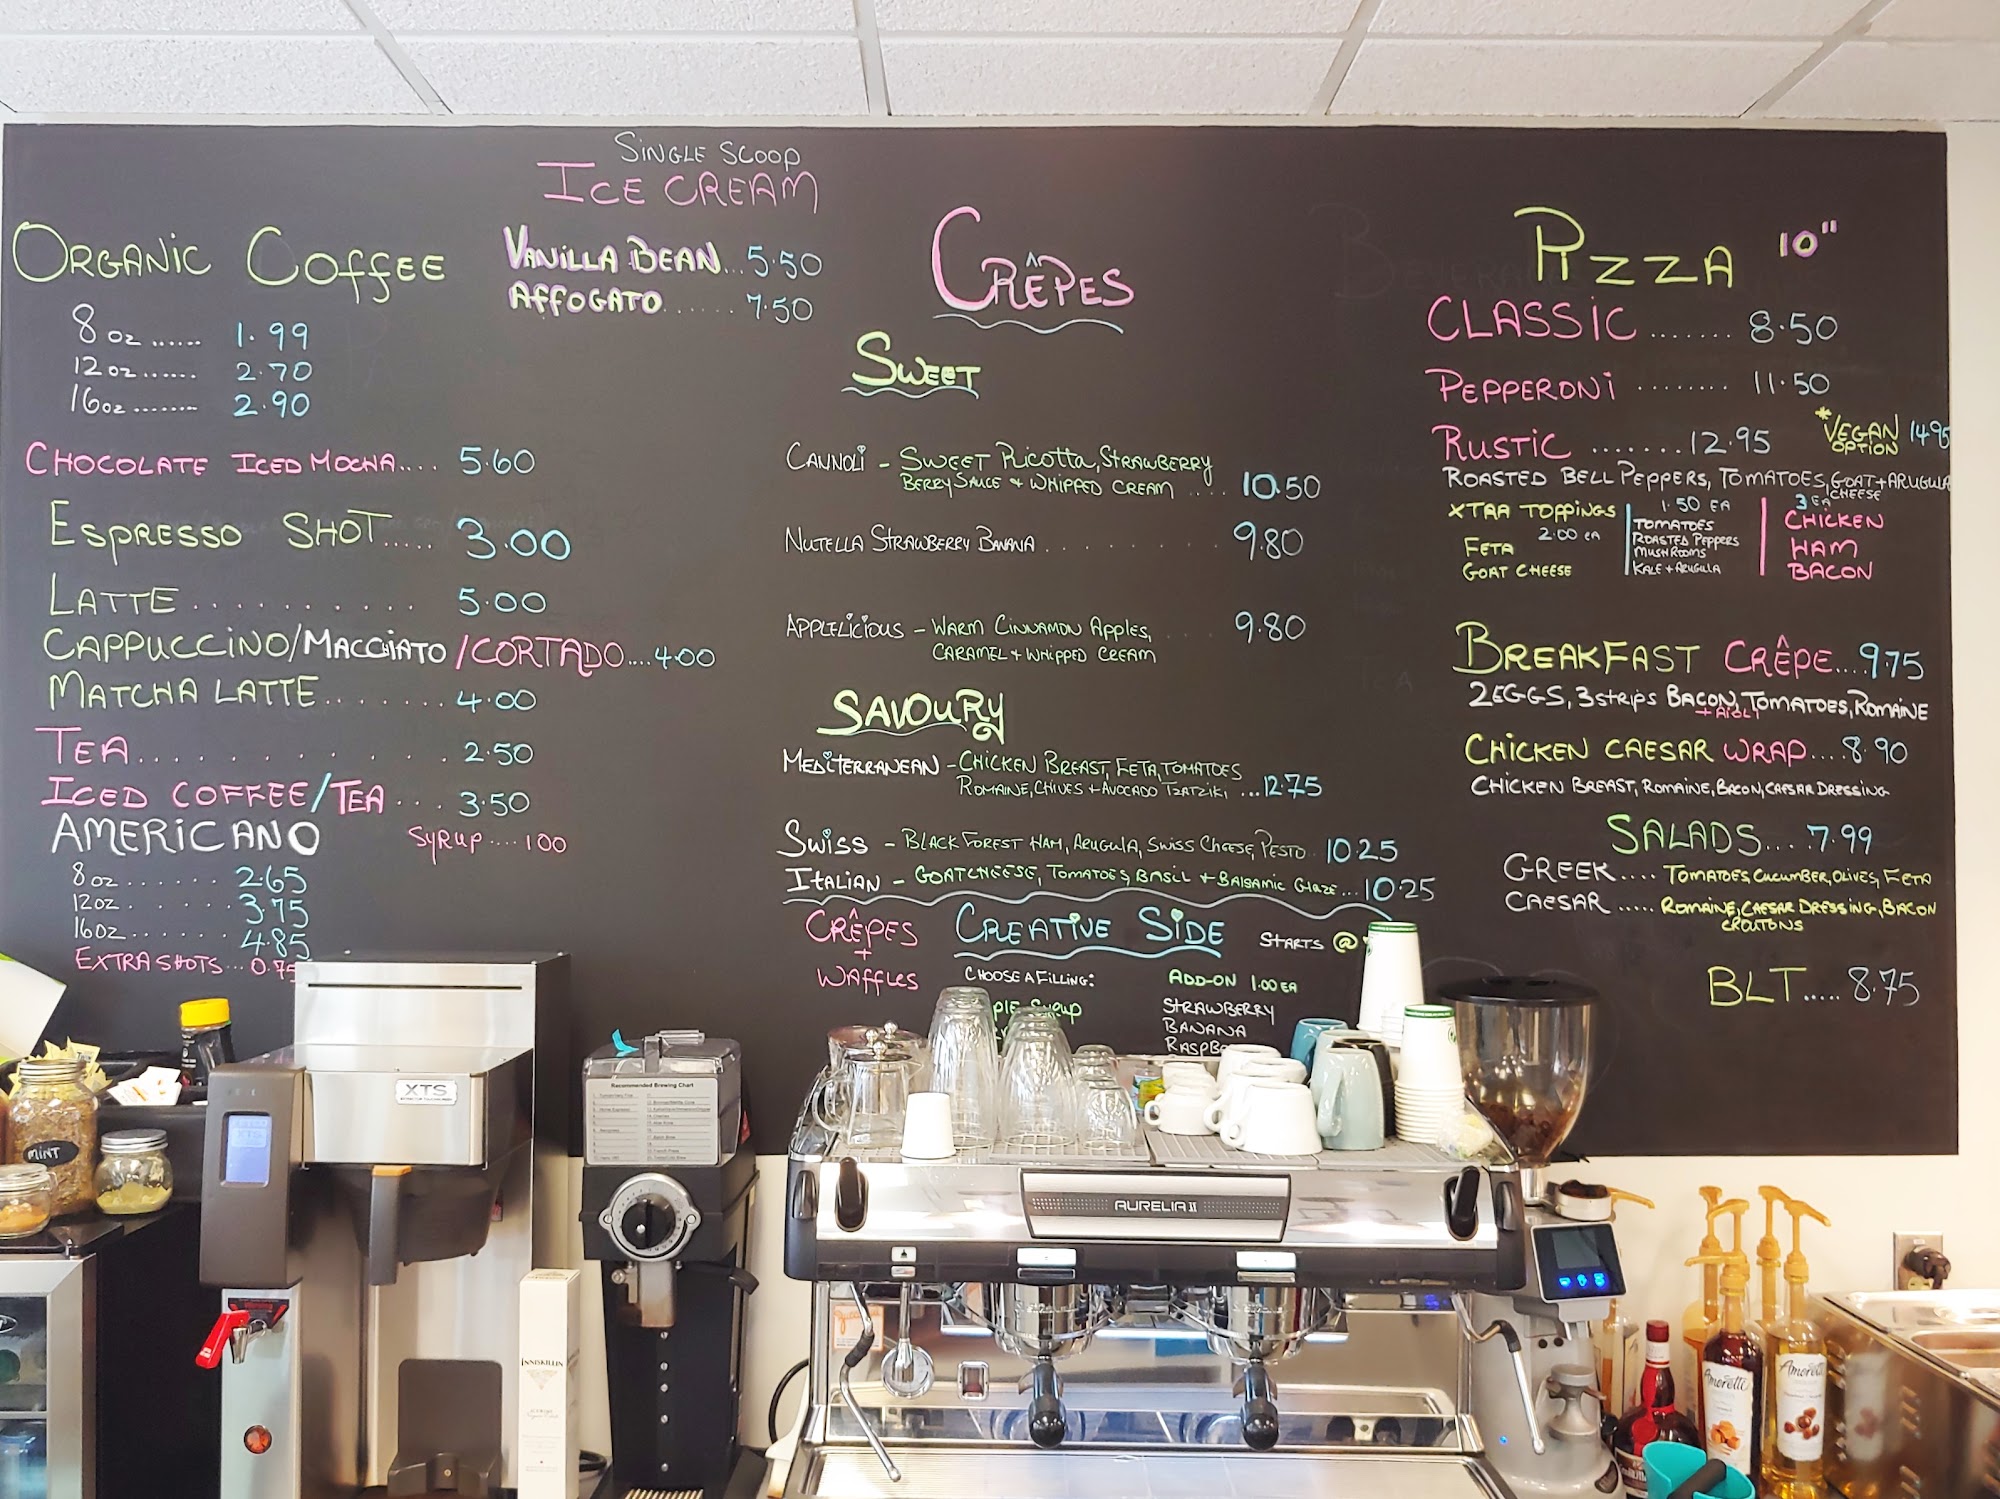 SINGLE SCOOP
ICE CREAM
VANILLA BEAN...5.50
AFFOGATO.......7.50
ORGANIC COFFEE
8 oz ...... 1.99
12 oz ....... 2.70
16 oz ........ 2.90
CHOCOLATE ICED MOCHA.... 5.60
ESPRESSO SHOT..... 3.00
LATTE.......... 5.00
CAPPUCCINO/MACCHIATO/CORTADO....4.00
MATCHA LATTE....... 4.00
TEA............ 2.50
ICED COFFEE/TEA... 3.50
AMERICANO
SYRUP....1.00
8 oz ...... 2.65
12 oz ...... 3.75
16 oz ...... 4.85
EXTRA SHOTS...0.75
CRÊPES
SWEET
CANNOLI - SWEET RICOTTA, STRAWBERRY
BERRY SAUCE + WHIPPED CREAM .... 10.50
NUTELLA STRAWBERRY BANANA ........ 9.80
APPLELICIOUS - WARM CINNAMON APPLES, ... 9.80
CARAMEL + WHIPPED CREAM
SAVOURY
MEDITERRANEAN - CHICKEN BREAST, FETA, TOMATOES
ROMAINE, CHIVES + AVOCADO TZATZIKI ...12.75
SWISS - BLACK FOREST HAM, ARUGULA, SWISS CHEESE, PESTO.. 10.25
ITALIAN - GOAT CHEESE, TOMATOES, BASIL + BALSAMIC GLAZE...10.25
CRÊPES
+
WAFFLES
CREATIVE SIDE STARTS @
CHOOSE A FILLING:
ADD-ON 1.00 EA
SYRUP
STRAWBERRY
BANANA
PIZZA 10"
CLASSIC ....... 8.50
PEPPERONI ........ 11.50
RUSTIC .......12.95
*VEGAN OPTION 14.95
ROASTED BELL PEPPERS, TOMATOES, GOAT CHEESE + ARUGULA
XTRA TOPPINGS
2.00 EA
FETA
GOAT CHEESE
1.50 EA
TOMATOES
ROASTED PEPPERS
MUSHROOMS
KALE + ARUGULA
3 EA
CHICKEN
HAM
BACON
BREAKFAST CRÊPE...9.75
2 EGGS, 3 STRIPS BACON, TOMATOES, ROMAINE
+ AIOLI
CHICKEN CAESAR WRAP....8.90
CHICKEN BREAST, ROMAINE, BACON, CAESAR DRESSING
SALADS....7.99
GREEK.... TOMATOES, CUCUMBER, OLIVES, FETA
CAESAR ..... ROMAINE, CAESAR DRESSING, BACON
CROUTONS
BLT..... 8.75
XTS
Recommended Brewing Chart
MINT
AURELIA II
INNISKILLIN
Amoretti
Amoretti